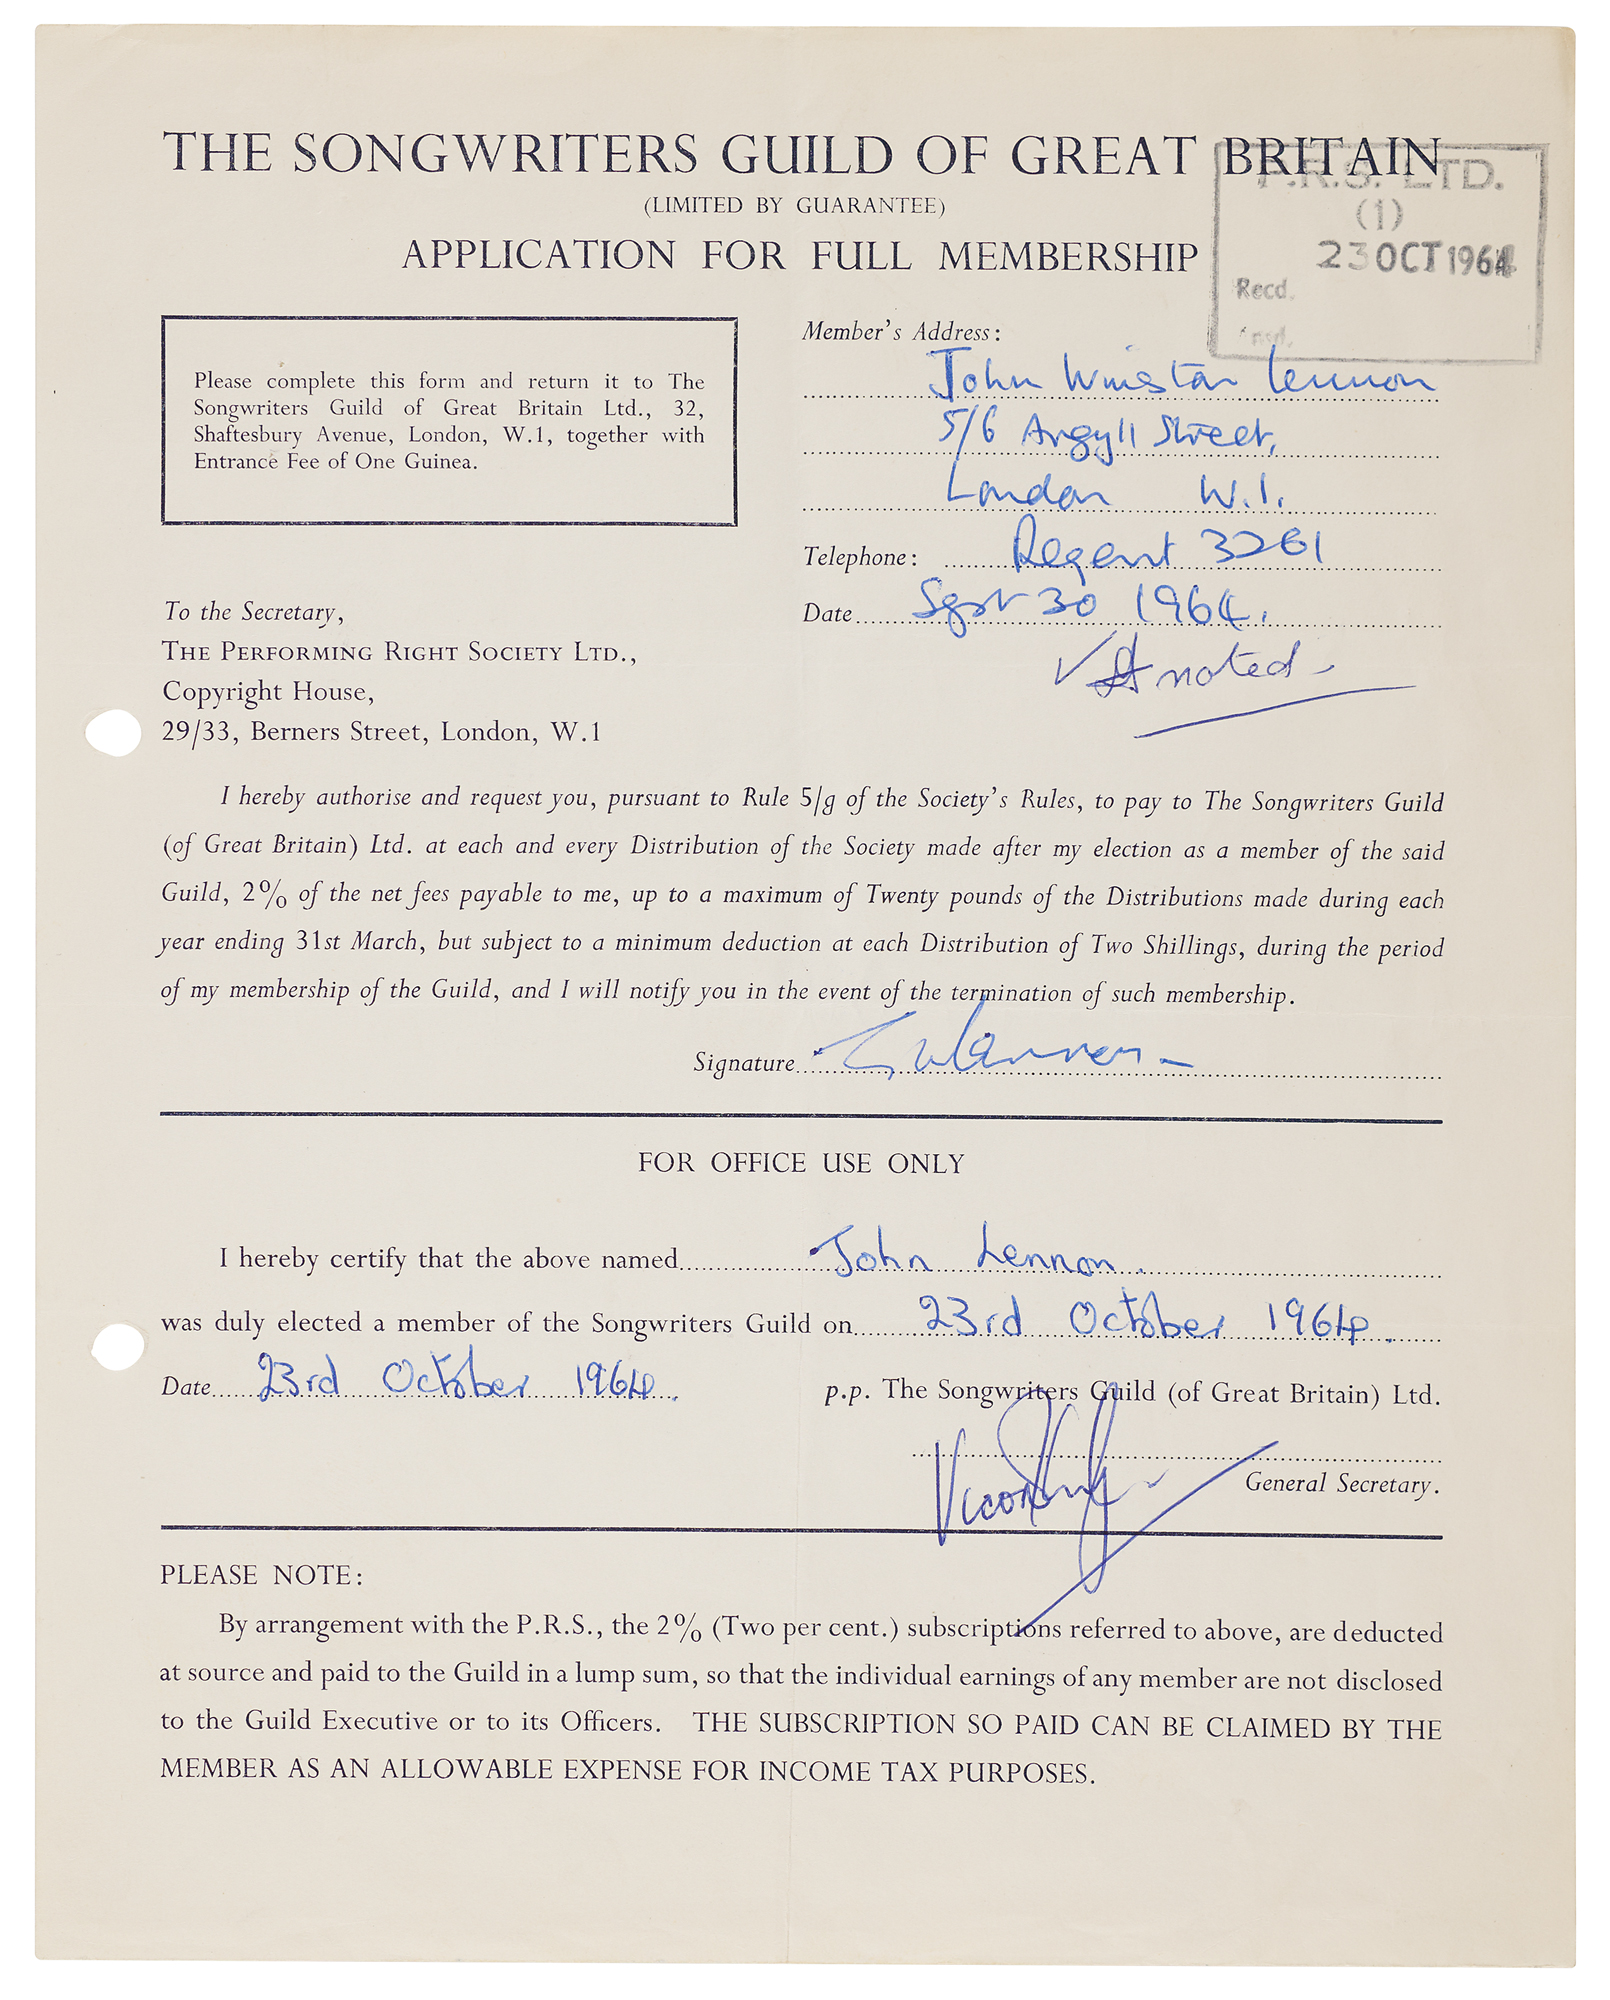 THE SONGWRITERS GUILD OF GREAT BRITAIN
(LIMITED BY GUARANTEE)
APPLICATION FOR FULL MEMBERSHIP
P.R.S. LTD.
(1)
23 OCT 1964
Recd.
Please complete this form and return it to The
Songwriters Guild of Great Britain Ltd., 32,
Shaftesbury Avenue, London, W.1, together with
Entrance Fee of One Guinea.
Member's Address:
John Winston Lennon
5/6 Argyll Street,
London W.1.
Telephone: Regent 3261
Date Sept 30 1964.
noted
To the Secretary,
THE PERFORMING RIGHT SOCIETY LTD.,
Copyright House,
29/33, Berners Street, London, W.1
I hereby authorise and request you, pursuant to Rule 5/g of the Society's Rules, to pay to The Songwriters Guild
(of Great Britain) Ltd. at each and every Distribution of the Society made after my election as a member of the said
Guild, 2% of the net fees payable to me, up to a maximum of Twenty pounds of the Distributions made during each
year ending 31st March, but subject to a minimum deduction at each Distribution of Two Shillings, during the period
of my membership of the Guild, and I will notify you in the event of the termination of such membership.
Signature J W Lennon
FOR OFFICE USE ONLY
I hereby certify that the above named John Lennon.
was duly elected a member of the Songwriters Guild on 23rd October 1964.
Date 23rd October 1964.
p.p. The Songwriters Guild (of Great Britain) Ltd.
General Secretary.
PLEASE NOTE:
By arrangement with the P.R.S., the 2% (Two per cent.) subscriptions referred to above, are deducted
at source and paid to the Guild in a lump sum, so that the individual earnings of any member are not disclosed
to the Guild Executive or to its Officers. THE SUBSCRIPTION SO PAID CAN BE CLAIMED BY THE
MEMBER AS AN ALLOWABLE EXPENSE FOR INCOME TAX PURPOSES.